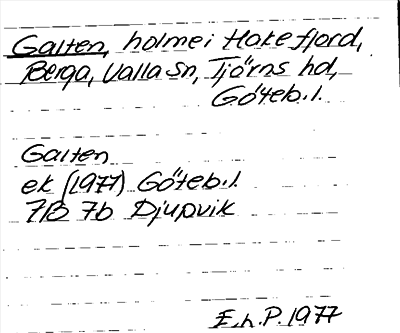 Galten, holme i Hakefjord,
Berga, Valla sn, Tjörns hd,
Göteb. l.
Galten
ek (1977) Göteb. l.
7B 7b Djupvik
E. h. P. 1977